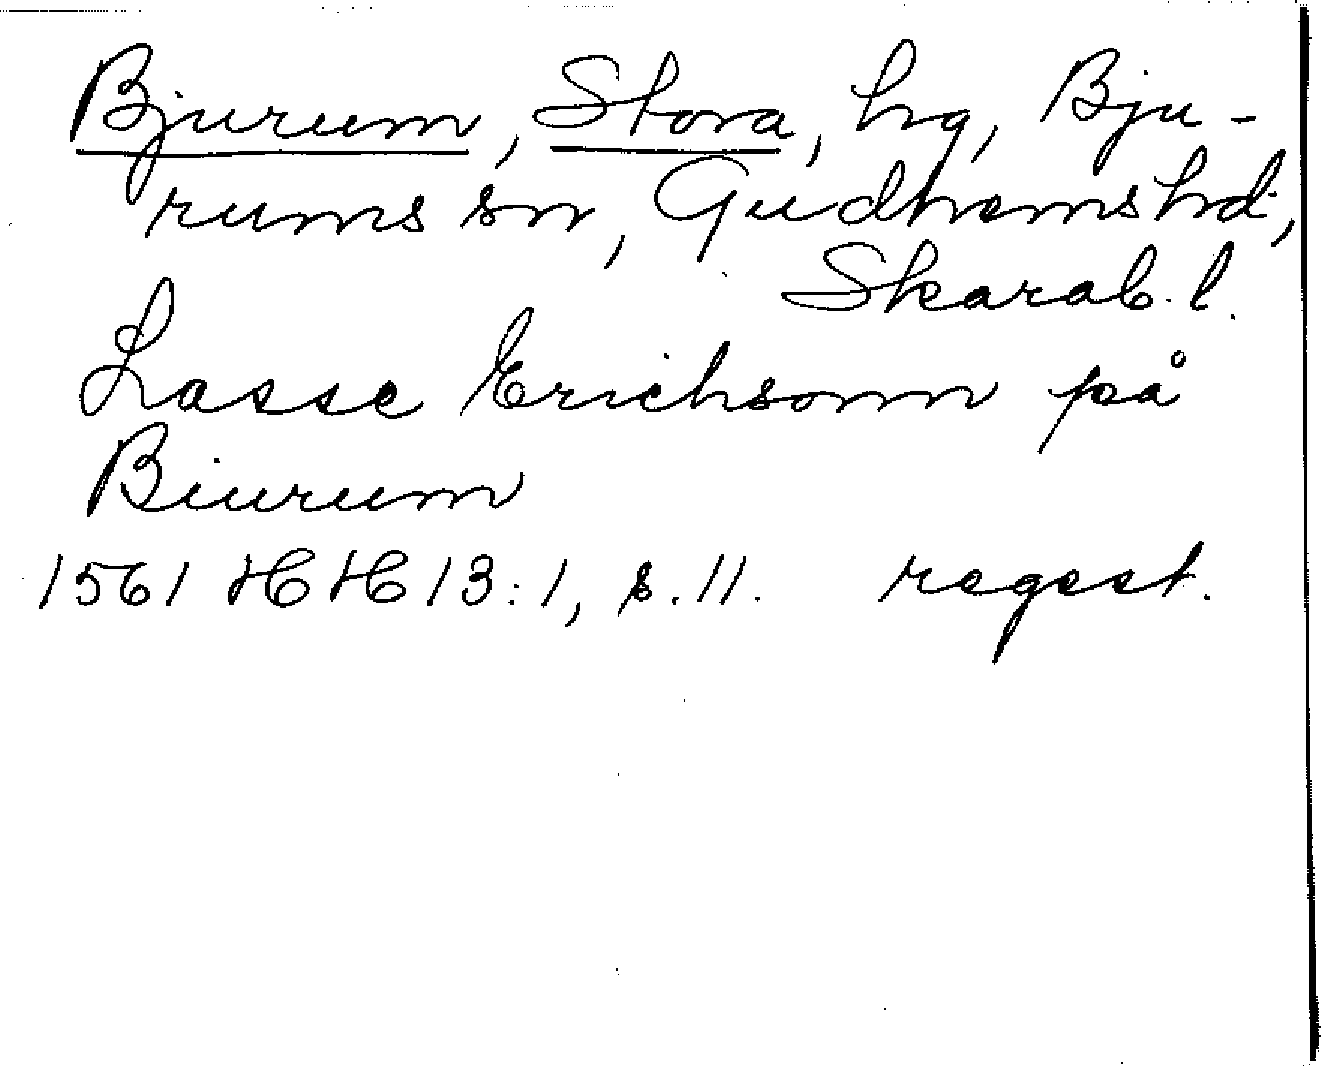 Bjurum, Stora, hg, Bju-
rums sn, Gudhems hd,
Skarab. l.
Lasse Erichsonn på
Biurum
1561 HH 13:1, s. 11. regest.